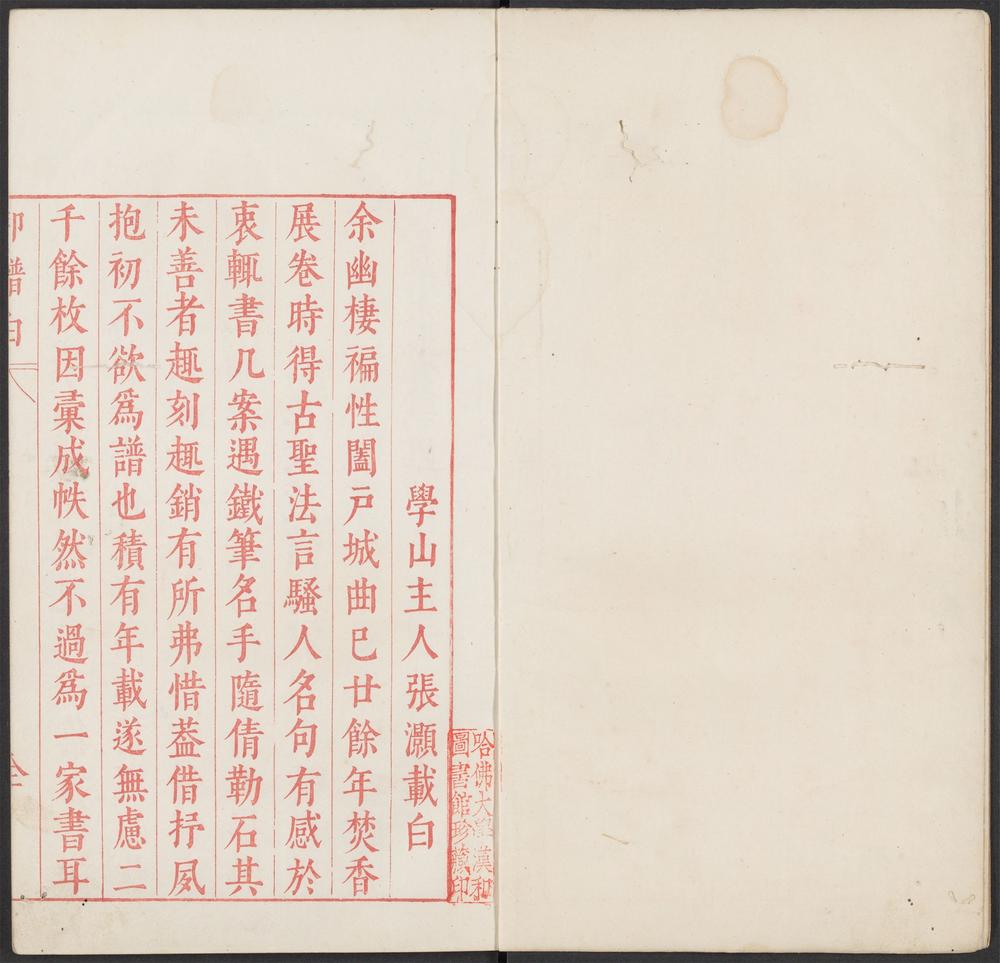 學山主人張灝載白
余幽棲褊性闔戸城曲巳廿餘年焚香
展卷時得古聖法言騷人名句有感於
衷輒書几案遇鐵筆名手隨倩勒石其
未善者趣刻趣銷有所弗惜葢借抒夙
抱初不欲爲譜也積有年載遂無慮二
千餘枚因彙成帙然不過爲一家書耳
印譜白
全
哈佛大學漢和
圖書館珍藏印